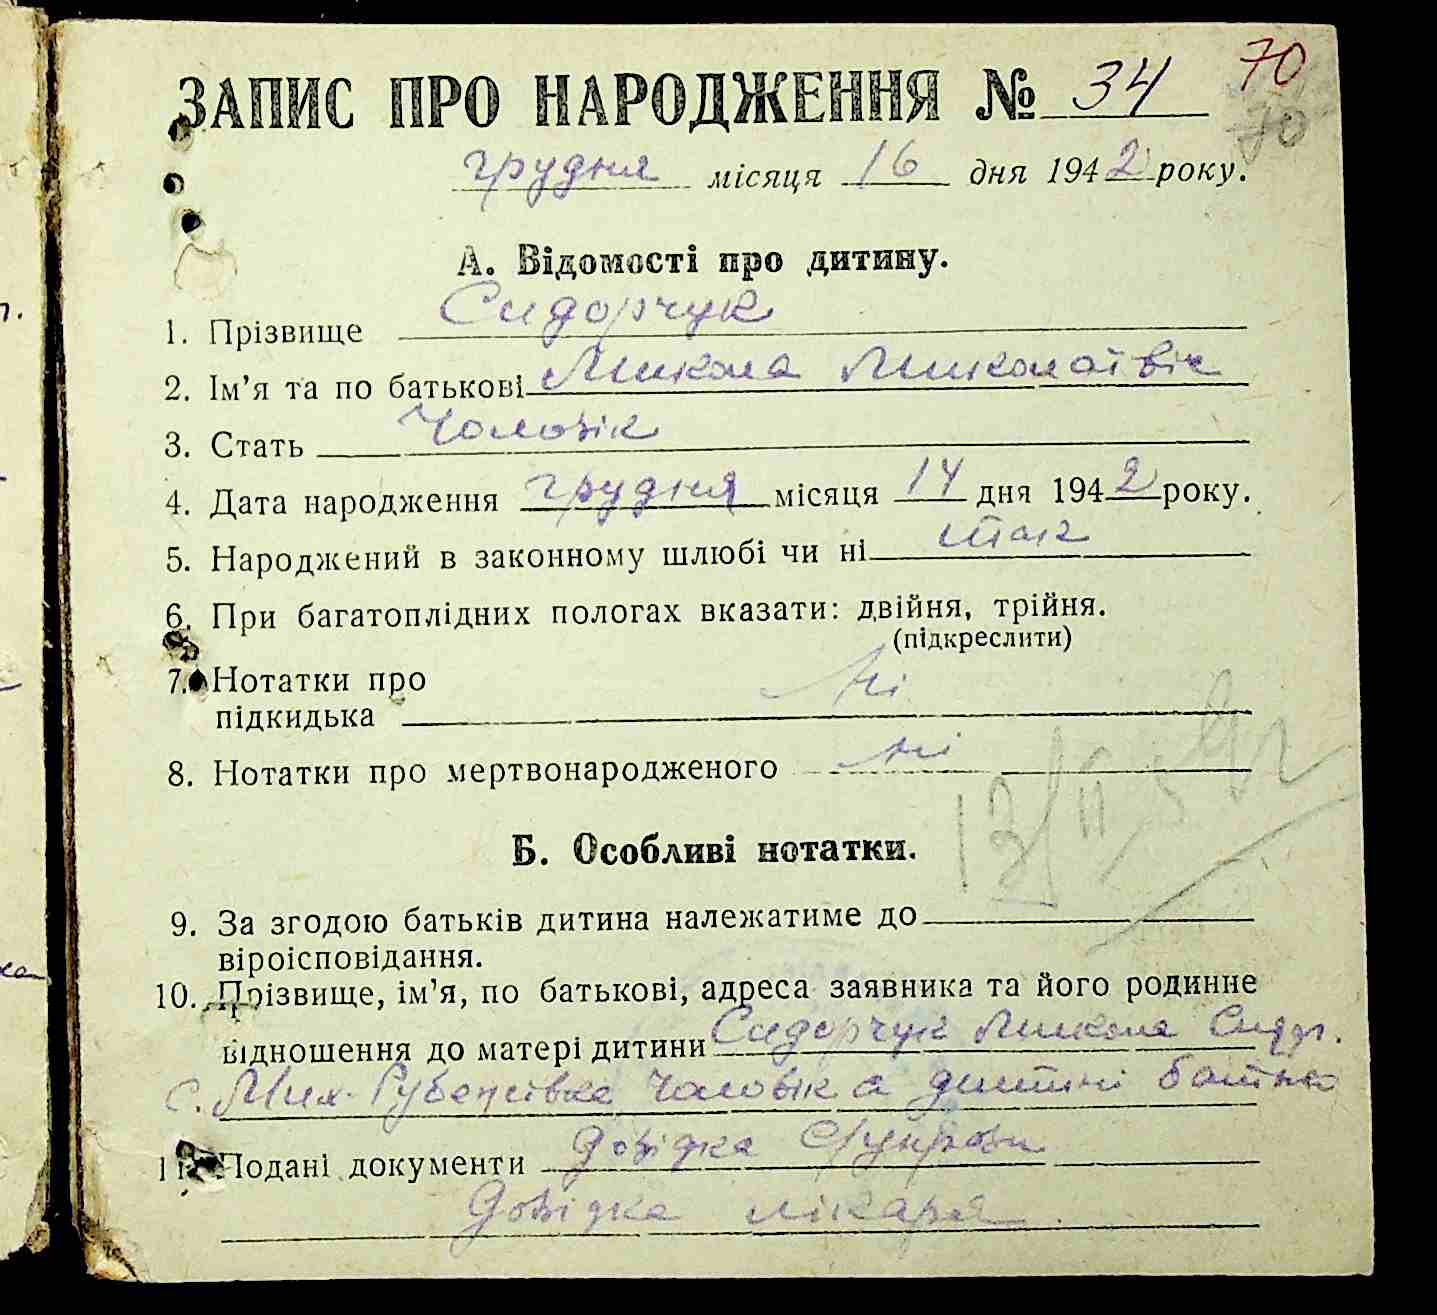 70
ЗАПИС ПРО НАРОДЖЕННЯ № 34
70
грудня місяця 16 дня 1942 року.
А. Відомості про дитину.
1. Прізвище Сидорчук
2. Ім'я та по батькові Микола Миколаївич
3. Стать Чоловік
4. Дата народження грудня місяця 14 дня 1942 року.
5. Народжений в законному шлюбі чи ні так
6. При багатоплідних пологах вказати: двійня, трійня.
(підкреслити)
7. Нотатки про
підкидька ні
8. Нотатки про мертвонародженого ні
Б. Особливі нотатки.
9. За згодою батьків дитина належатиме до
віроісповідання.
10. Прізвище, ім'я, по батькові, адреса заявника та його родинне
відношення до матері дитини Сидорчук Микола
с. Мих. Рубежівка чоловік а дитині батько
11. Подані документи довідка
Довідка лікаря